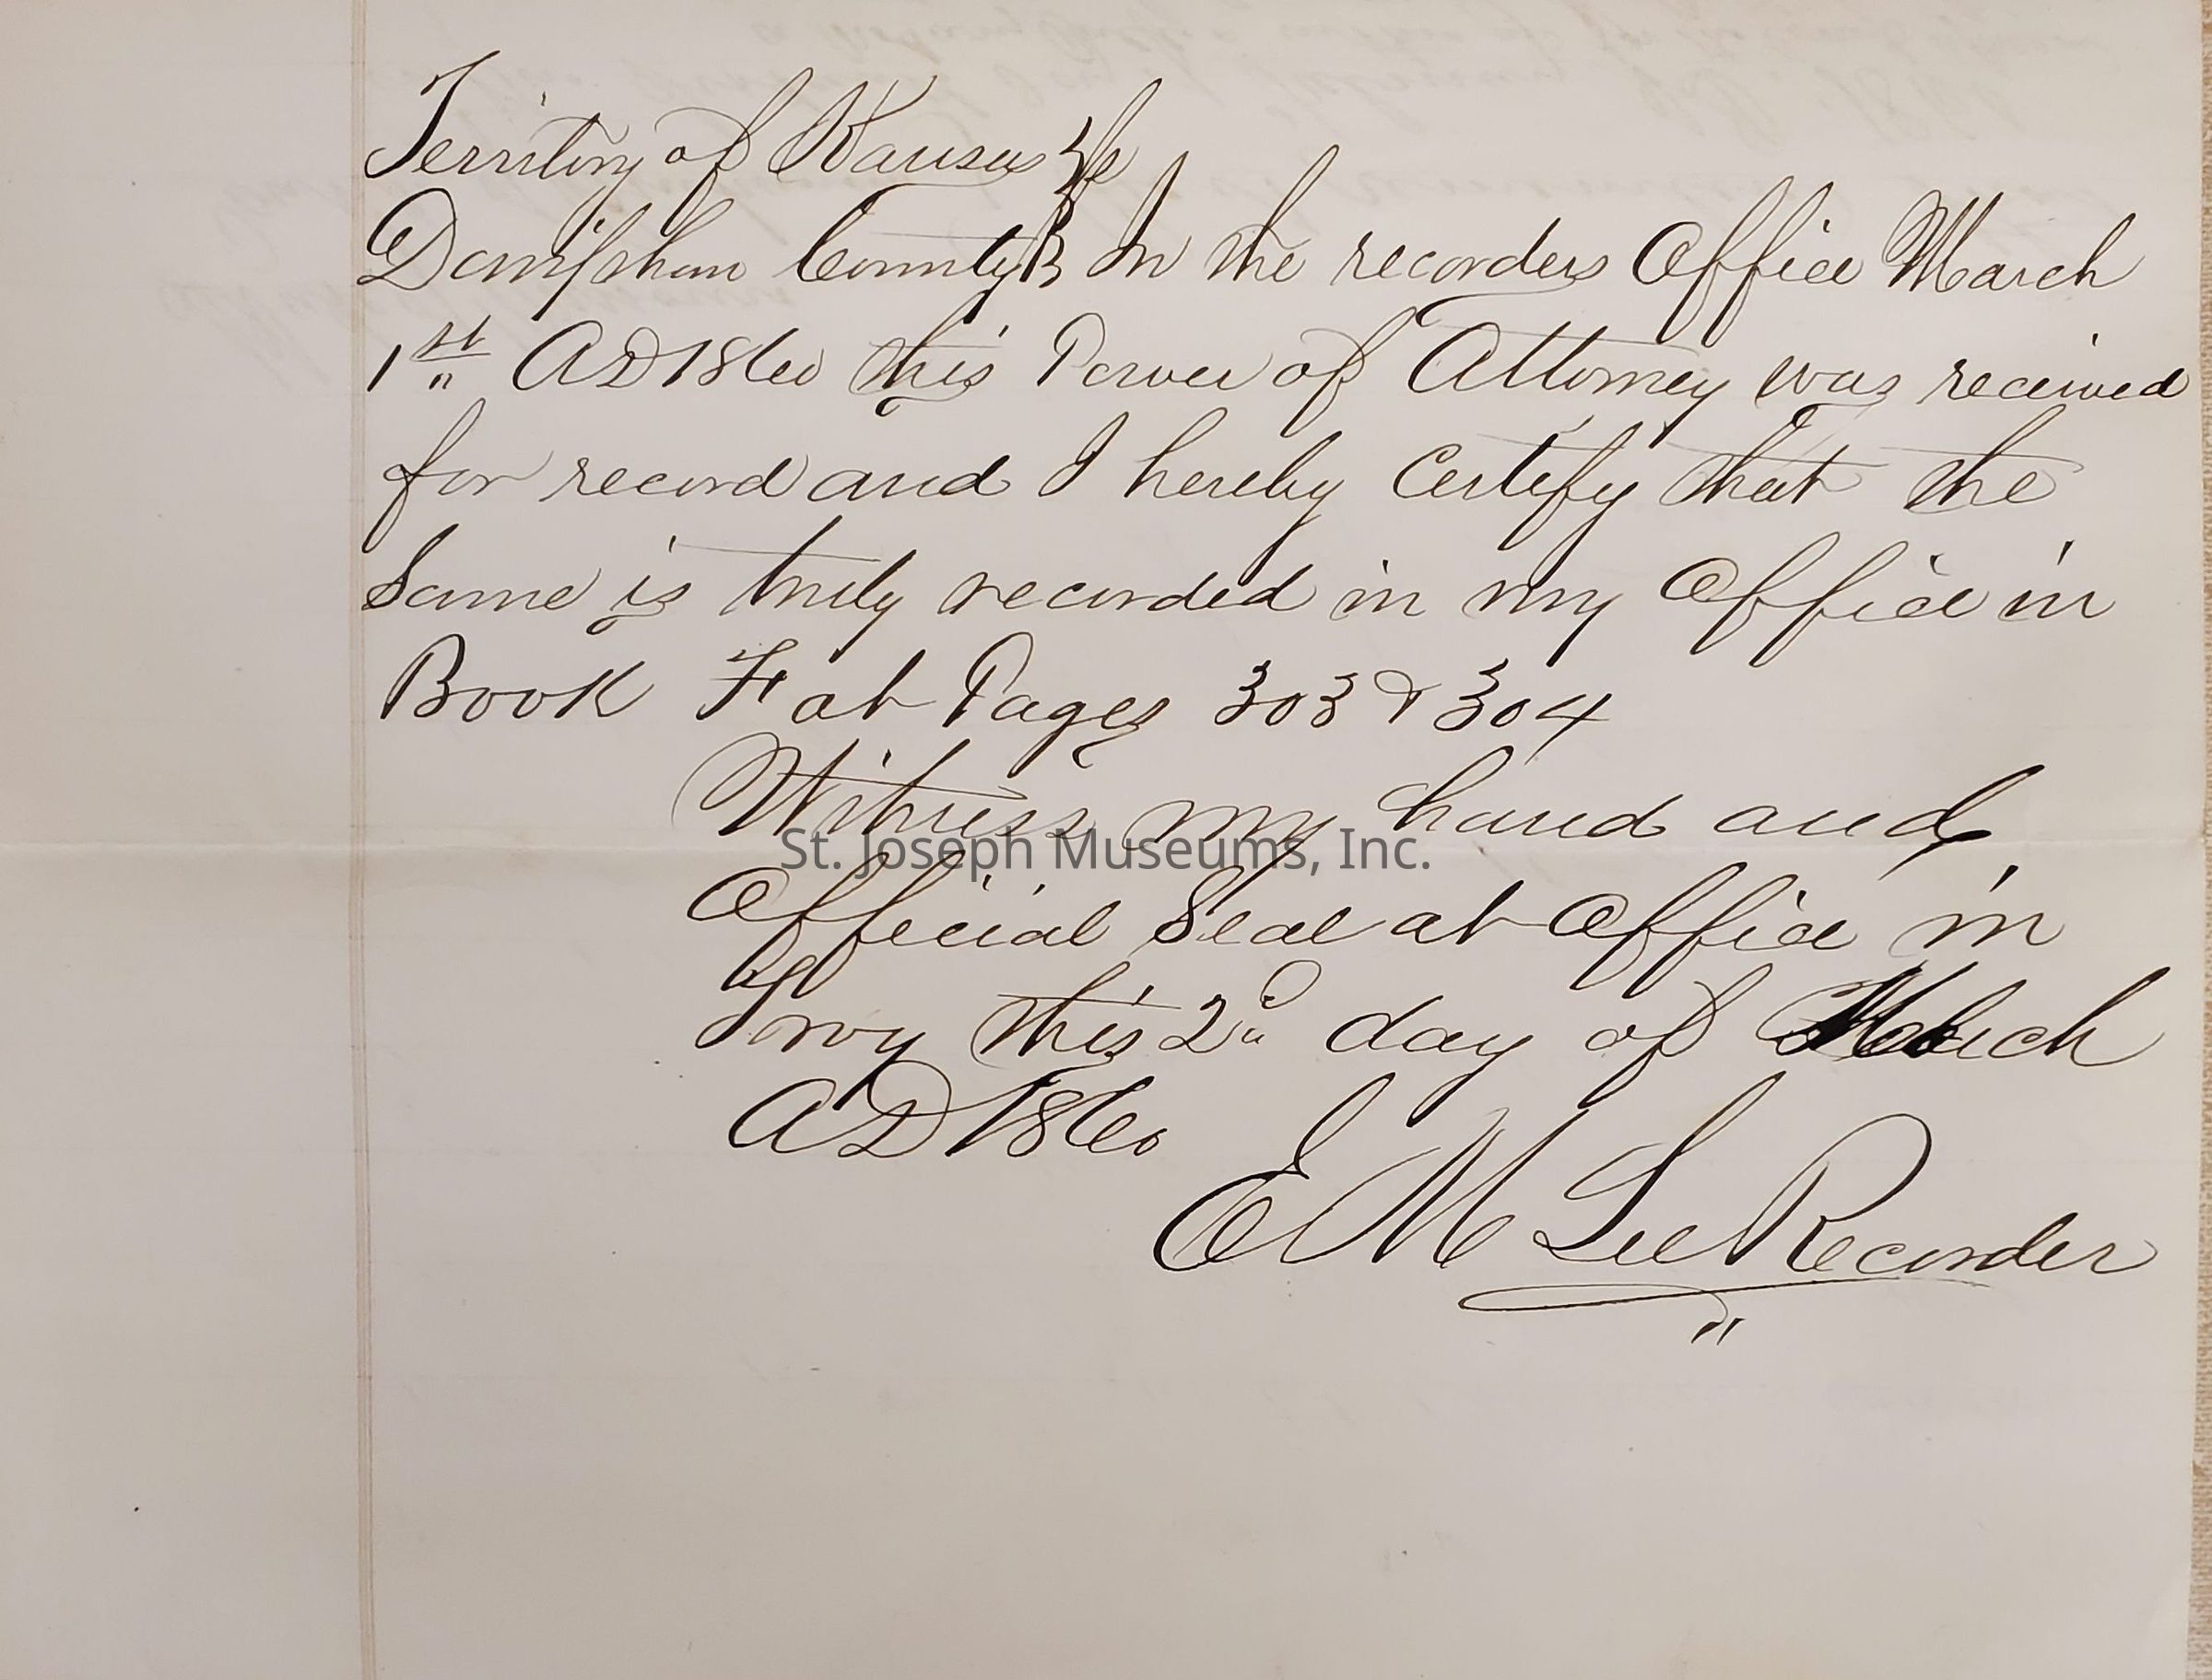 Territory of Kansas } ss
Doniphan County } In the recorders Office March
1st AD 1860 this Power of Attorney was received
for record and I hereby Certify that the
Same is truly recorded in my Office in
Book F at Pages 303 & 304
Witness my hand and
St. Joseph Museums, Inc.
Official Seal at Office in
Troy this 2d day of March
AD 1860
E M Lee Recorder